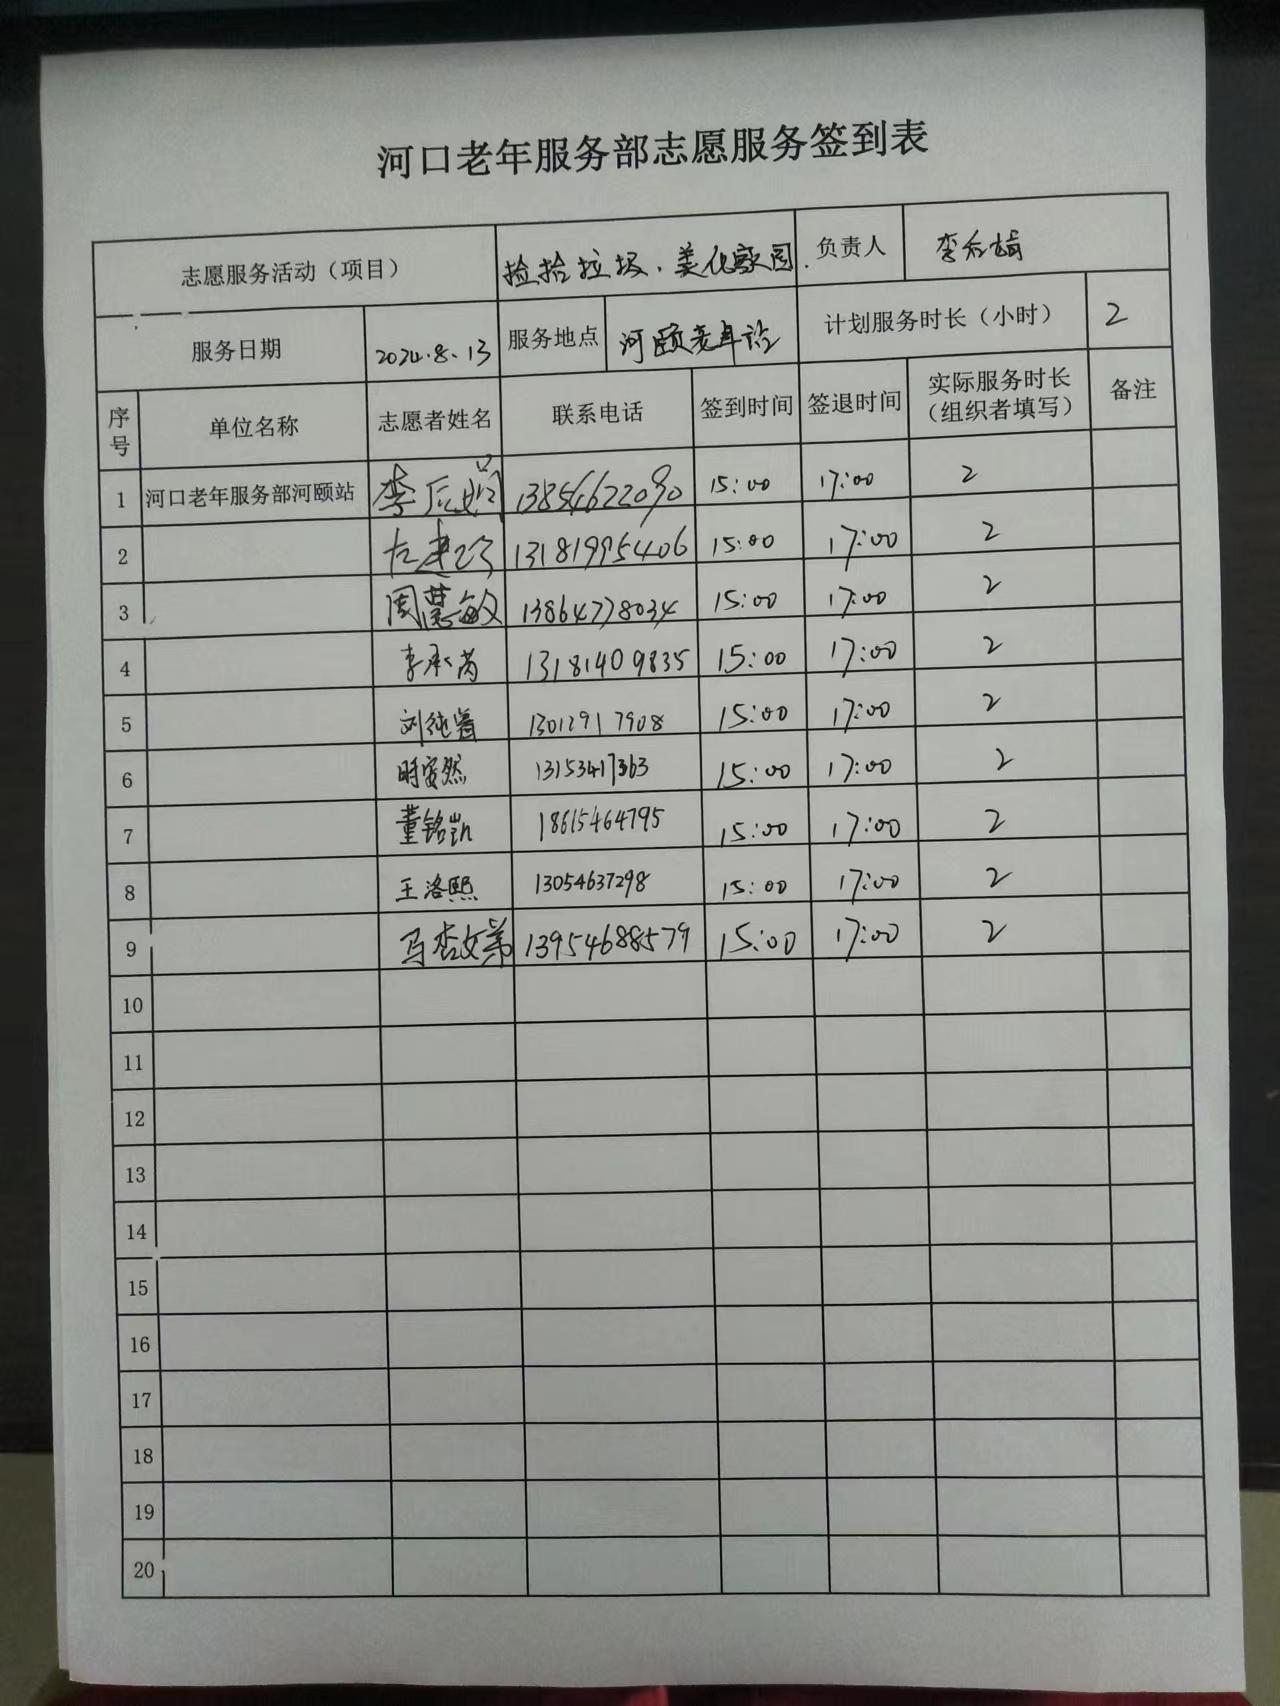 河口老年服务部志愿服务签到表
志愿服务活动（项目） 捡拾垃圾、美化家园 负责人
服务日期 2024.8.13 服务地点 河颐老年 计划服务时长（小时） 2
序号 单位名称 志愿者姓名 联系电话 签到时间 签退时间 实际服务时长（组织者填写） 备注
1 河口老年服务部河颐站 13854622090 15:00 17:00 2
2 13181995406 15:00 17:00 2
3 周慧敏 13864778034 15:00 17:00 2
4 13181409835 15:00 17:00 2
5 13012917908 15:00 17:00 2
6 明安然 13153417363 15:00 17:00 2
7 董铭凯 18615464795 15:00 17:00 2
8 王洛熙 13054637298 15:00 17:00 2
9 13954688579 15:00 17:00 2
10
11
12
13
14
15
16
17
18
19
20